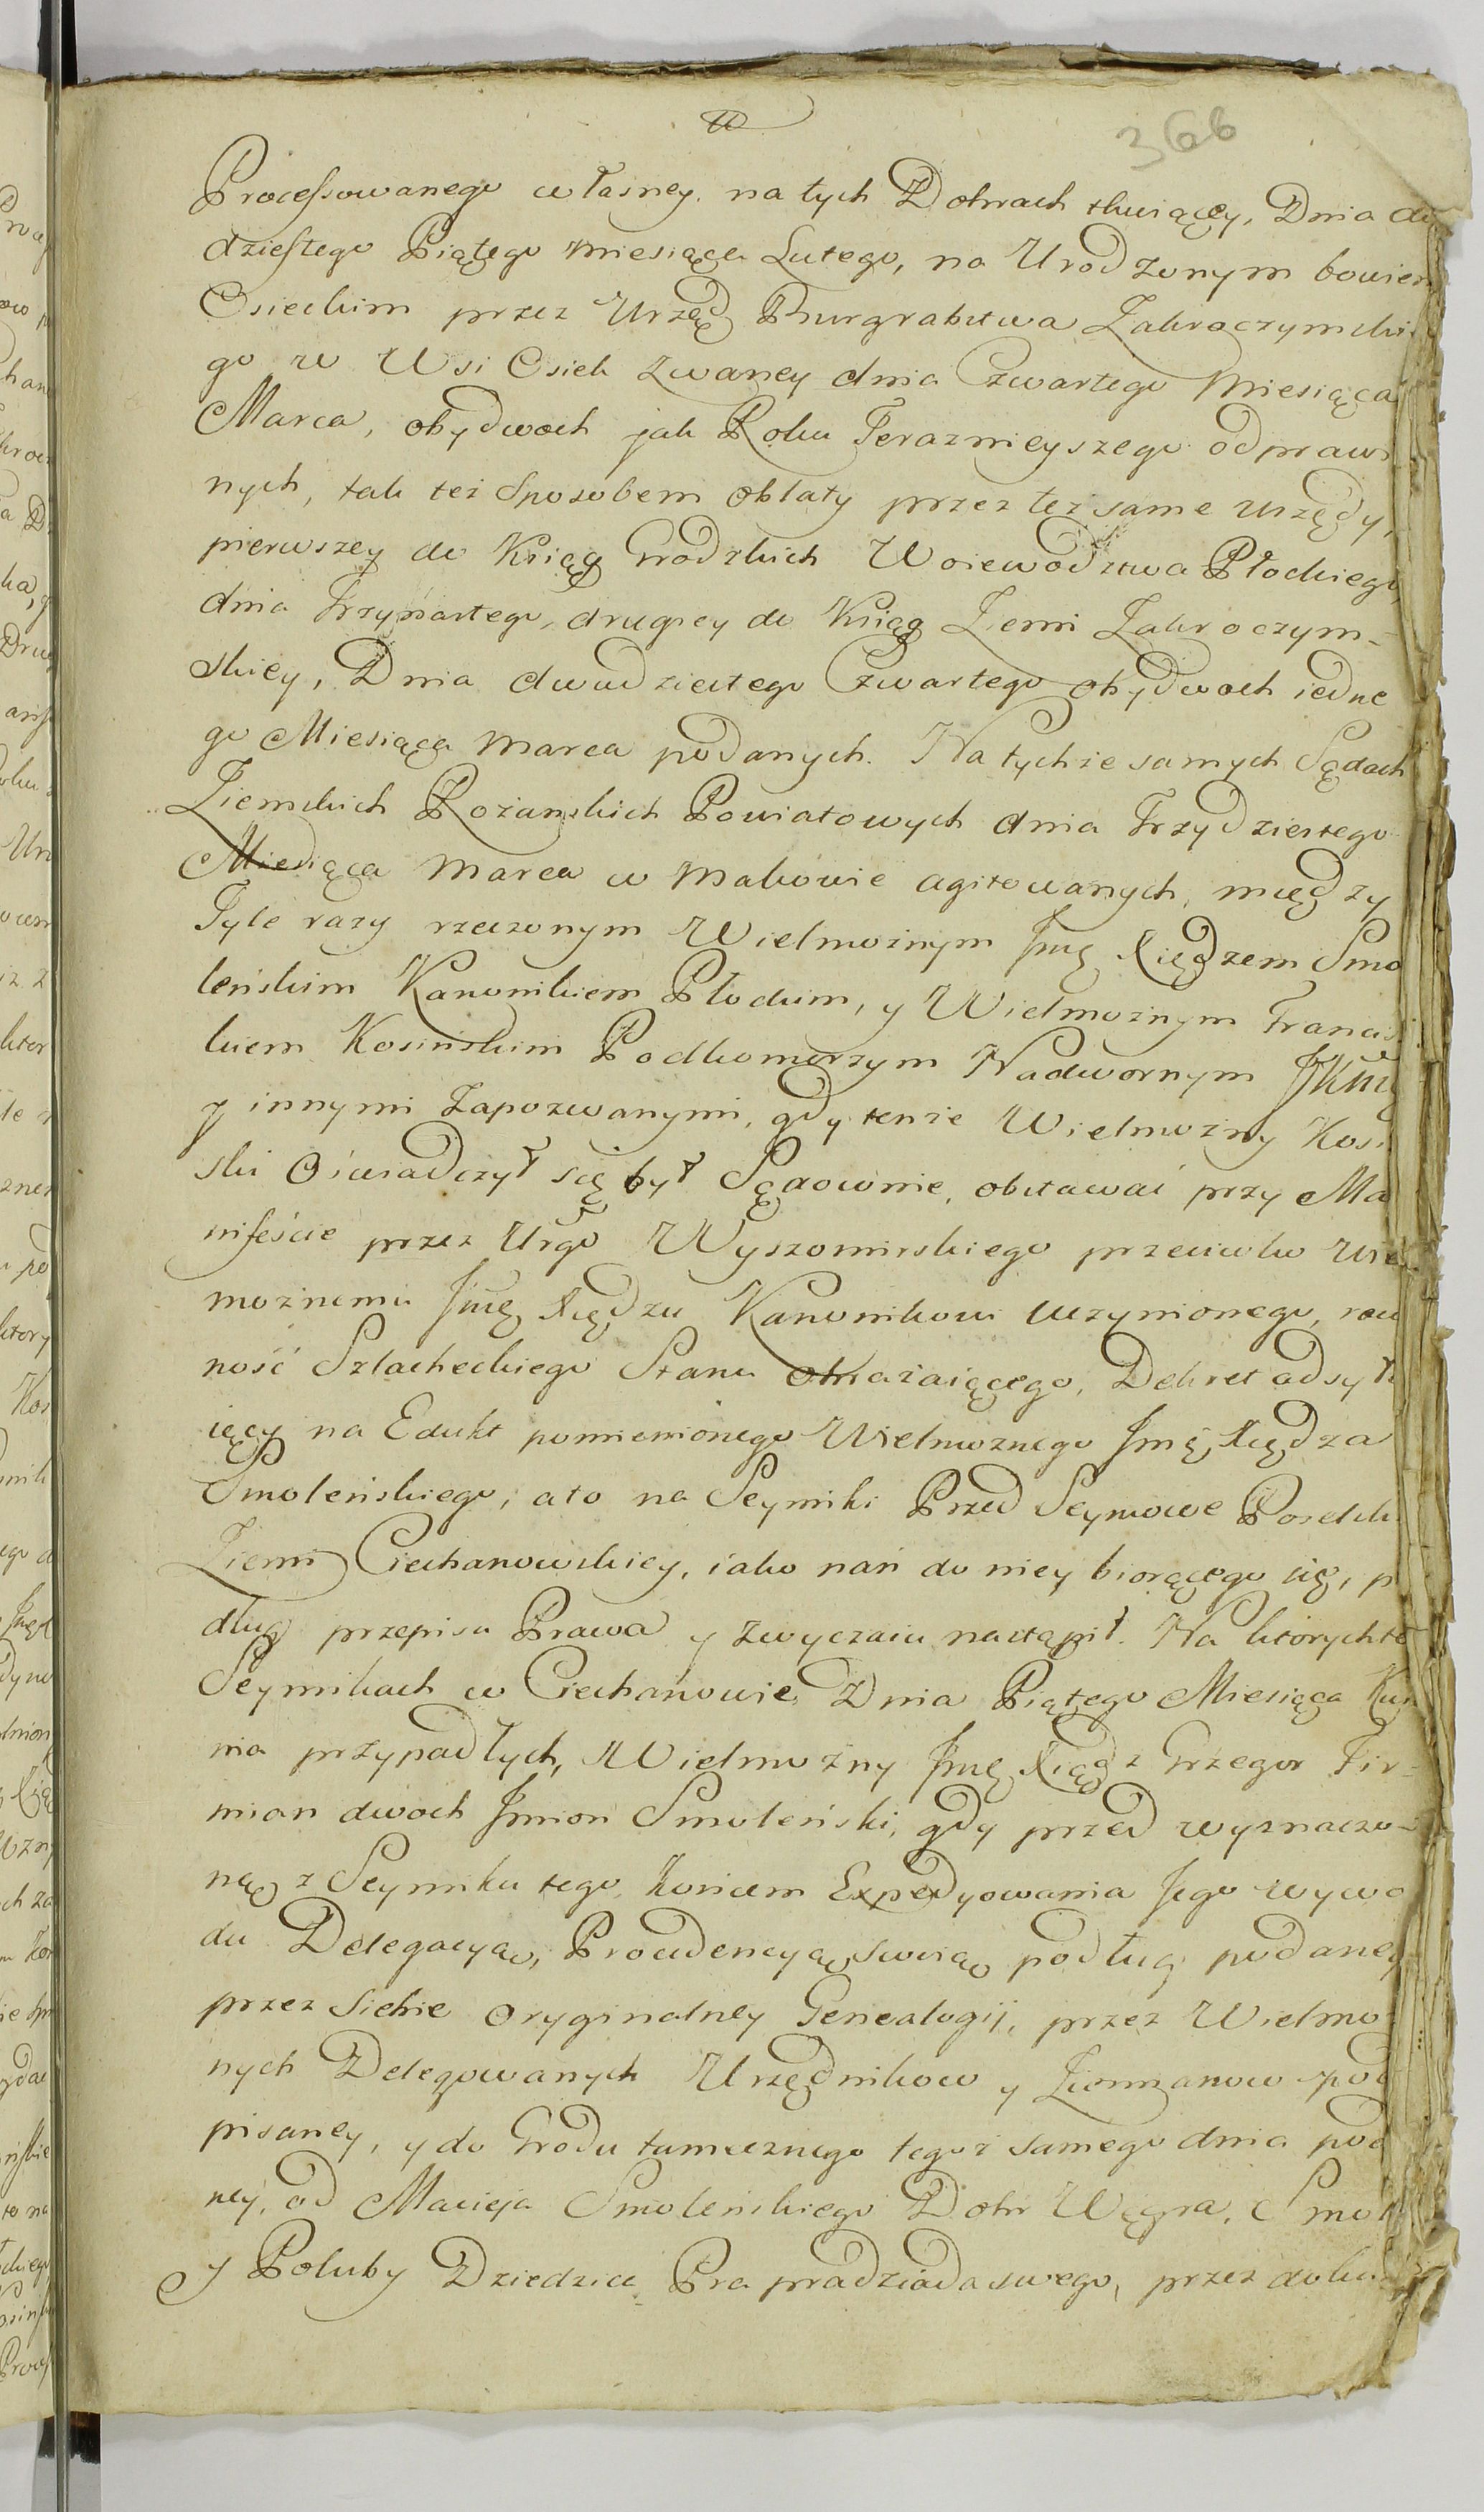 366
Processowanego własney na tych Dobrach tkwiącey, Dnia
dziestego Piątego miesiąca Lutego, na Urodzonym bowiem
Osieckim przez Urząd Burgrabstwa Zakroczymskie
go w Wsi Osiek zwaney dnia Czwartego Miesiąca
Marca, obydwoch jak Roku Teraznieyszego odpraw
nych, tak też Sposobem oblaty przez też same urzędy,
pierwszey do Ksiąg Grodzkich Woiewodztwa Płockiego,
dnia Trzynastego, drugiey do Ksiąg Ziemi Zakroczym-
skiey, Dnia dwudziestego Czwartego obydwoch iedne
go Miesiąca Marca podanych. Na tychże samych Sądach
Ziemskich Rożanskich Powiatowych dnia Trzydziestego
Miesiąca Marca w Makowie agitowanych, między
Tyle razy rzeczonym Wielmożnym Jmę Xiędzem Smo
leńskim Kanonikiem Płockim, y Wielmożnym Francisz
kiem Kosińskim Podkomorzym Nadwornym JKMci
y innymi Zapozwanymi, gdy tenże Wielmożny Kosi
ski Oświadczył się był Sądownie, obstawać przy Ma
nifeście przez Urgo Wyszomirskiego przeciwko Wiel
możnemu Jmę Xiędzu Kanonikowi uczynionego, row
ność Szlacheckiego Stanu obrażaiącego, Dekret odsyła
iący na Edukt pomienionego Wielmożnego Jmę Xiędza
Smoleńskiego, a to na Seymiki Przed Seymowe Poselsk
Ziemi Ciechanowskiey, iako nań do niey biorącego się, p
dług przepisu Prawa y zwyczaiu nastąpił. Na ktorychto
Seymikach w Ciechanowie Dnia Piątego Miesiąca
nia przypadłych, Wielmożny Jmę Xiądz Grzegor Fir-
mian dwoch Jmion Smoleński, gdy przed wyznaczo-
ną z Seymiku tego, końcem Expedyowania Jego wywo
du Delegacyą, Procedencyą swoią podług podaney
przez Siebie oryginalney Genealogij, przez Wielmo
nych Delegowanych Urzędnikow y Ziemianow pod
pisaney, y do Grodu tamecznego tegoż samego dnia pod
ney, od Macieja Smoleńskiego Dobr Węgra, Smol
y Poluby Dziedzica Pra pradziada swego, przez doku